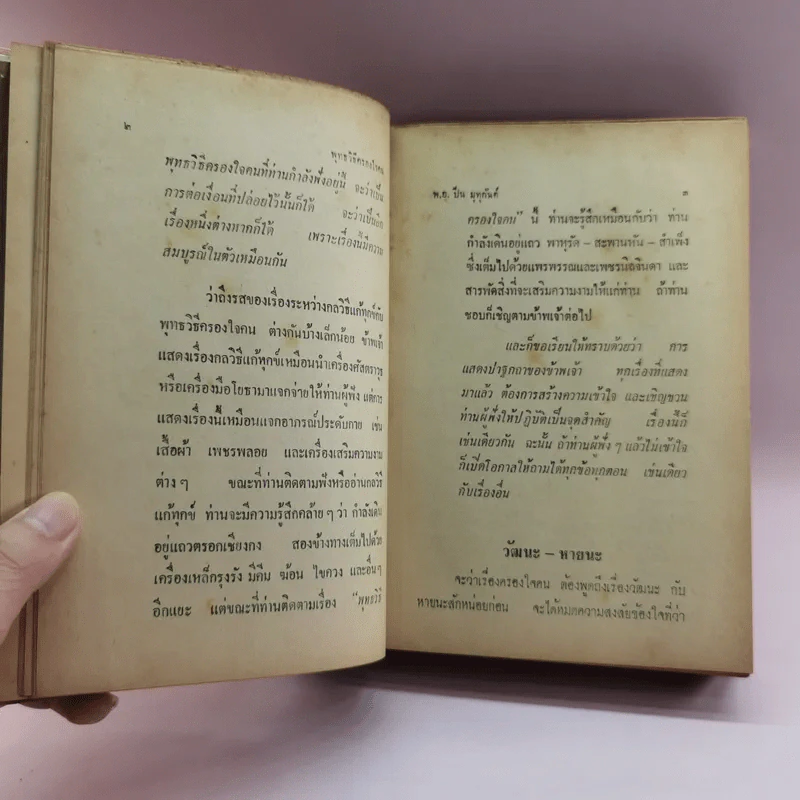 ๒
พุทธวิธีครองใจคน
พุทธวิธีครองใจคนที่ท่านกำลังฟังอยู่นี้ จะว่าเป็น
การต่อเงื่อนที่ปล่อยไว้นั้นก็ได้ จะว่าเป็นอีก
เรื่องหนึ่งต่างหากก็ได้ เพราะเรื่องนี้มีความ
สมบูรณ์ในตัวเหมือนกัน
ว่าถึงรสของเรื่องระหว่างกลวิธีแก้ทุกข์กับ
พุทธวิธีครองใจคน ต่างกันบ้างเล็กน้อย ข้าพเจ้า
แสดงเรื่องกลวิธีแก้ทุกข์เหมือนนำเครื่องศัสตราวุธ
หรือเครื่องมือโยธามาแจกจ่ายให้ท่านผู้ฟัง แต่การ
แสดงเรื่องนี้เหมือนแจกอาภรณ์ประดับกาย เช่น
เสื้อผ้า เพชรพลอย และเครื่องเสริมความงาม
ต่าง ๆ ขณะที่ท่านติดตามฟังหรืออ่านกลวิธี
แก้ทุกข์ ท่านจะมีความรู้สึกคล้าย ๆ ว่า กำลังเดิน
อยู่แถวตรอกเซียงกง สองข้างทางเต็มไปด้วย
เครื่องเหล็กรุงรัง มีคีม ฆ้อน ไขควง และอื่นๆ
อีกแยะ แต่ขณะที่ท่านติดตามเรื่อง "พุทธวิธี
พ.อ. ปิ่น มุทุกันต์
๓
ครองใจคน" นี้ ท่านจะรู้สึกเหมือนกับว่า ท่าน
กำลังเดินอยู่แถว พาหุรัด – สะพานหัน – สำเพ็ง
ซึ่งเต็มไปด้วยแพรพรรณและเพชรนิลจินดา และ
สารพัดสิ่งที่จะเสริมความงามให้แก่ท่าน ถ้าท่าน
ชอบก็เชิญตามข้าพเจ้าต่อไป
และก็ขอเรียนให้ทราบด้วยว่า การ
แสดงปาฐกถาของข้าพเจ้า ทุกเรื่องที่แสดง
มาแล้ว ต้องการสร้างความเข้าใจ และเชิญชวน
ท่านผู้ฟังให้ปฏิบัติเป็นจุดสำคัญ เรื่องนี้ก็
เช่นเดียวกัน ฉะนั้น ถ้าท่านผู้ฟัง ๆ แล้วไม่เข้าใจ
ก็เปิดโอกาสให้ถามได้ทุกข้อทุกตอน เช่นเดียว
กับเรื่องอื่น
วัฒนะ – หายนะ
จะว่าเรื่องครองใจคน ต้องพูดถึงเรื่องวัฒนะ กับ
หายนะสักหน่อยก่อน จะได้หมดความสงสัยข้องใจที่ว่า